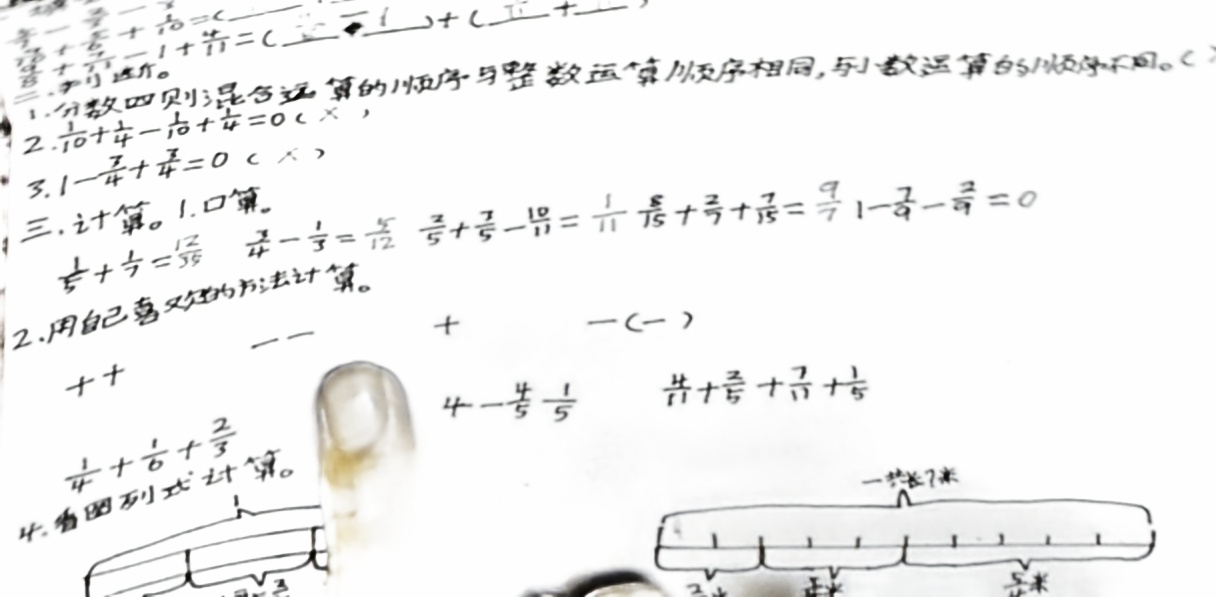 + 1/10 = (
+ 7/11 - 1 + 4/11 = ( - ) + ( + )
1.分数四则混合运算的顺序与整数运算顺序相同,与小数运算的顺序不同。( )
2. 1/10 + 1/4 - 1/10 + 1/4 = 0 ( × )
3. 1 - 3/4 + 3/4 = 0 ( × )
三.计算。1.口算。
1/5 + 1/7 = 12/35 3/4 - 1/3 = 5/12 2/5 + 3/5 - 10/11 = 1/11 8/15 + 2/7 + 7/15 = 9/7 1 - 7/9 - 2/9 = 0
2.用自己喜欢的方法计算。
+ + — — + —(—)
1/4 + 1/6 + 2/3 4 - 4/5 - 1/5 4/11 + 2/5 + 7/11 + 1/5
4.看图列式计算。
1 一共长?米
米 米 5/4米